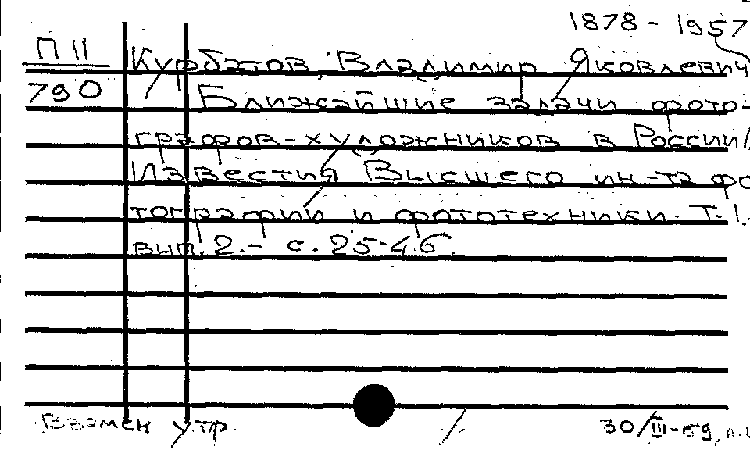 1878 - 1957
П II Курбатов, Владимир Яковлевич
790 Ближайшие задачи фото-
графов-художников в России//
Известия Высшего ин-та фо
тографии и фототехники. Т. 1.
вып. 2. - с. 25-46.
Взамен утр. 30/III-59